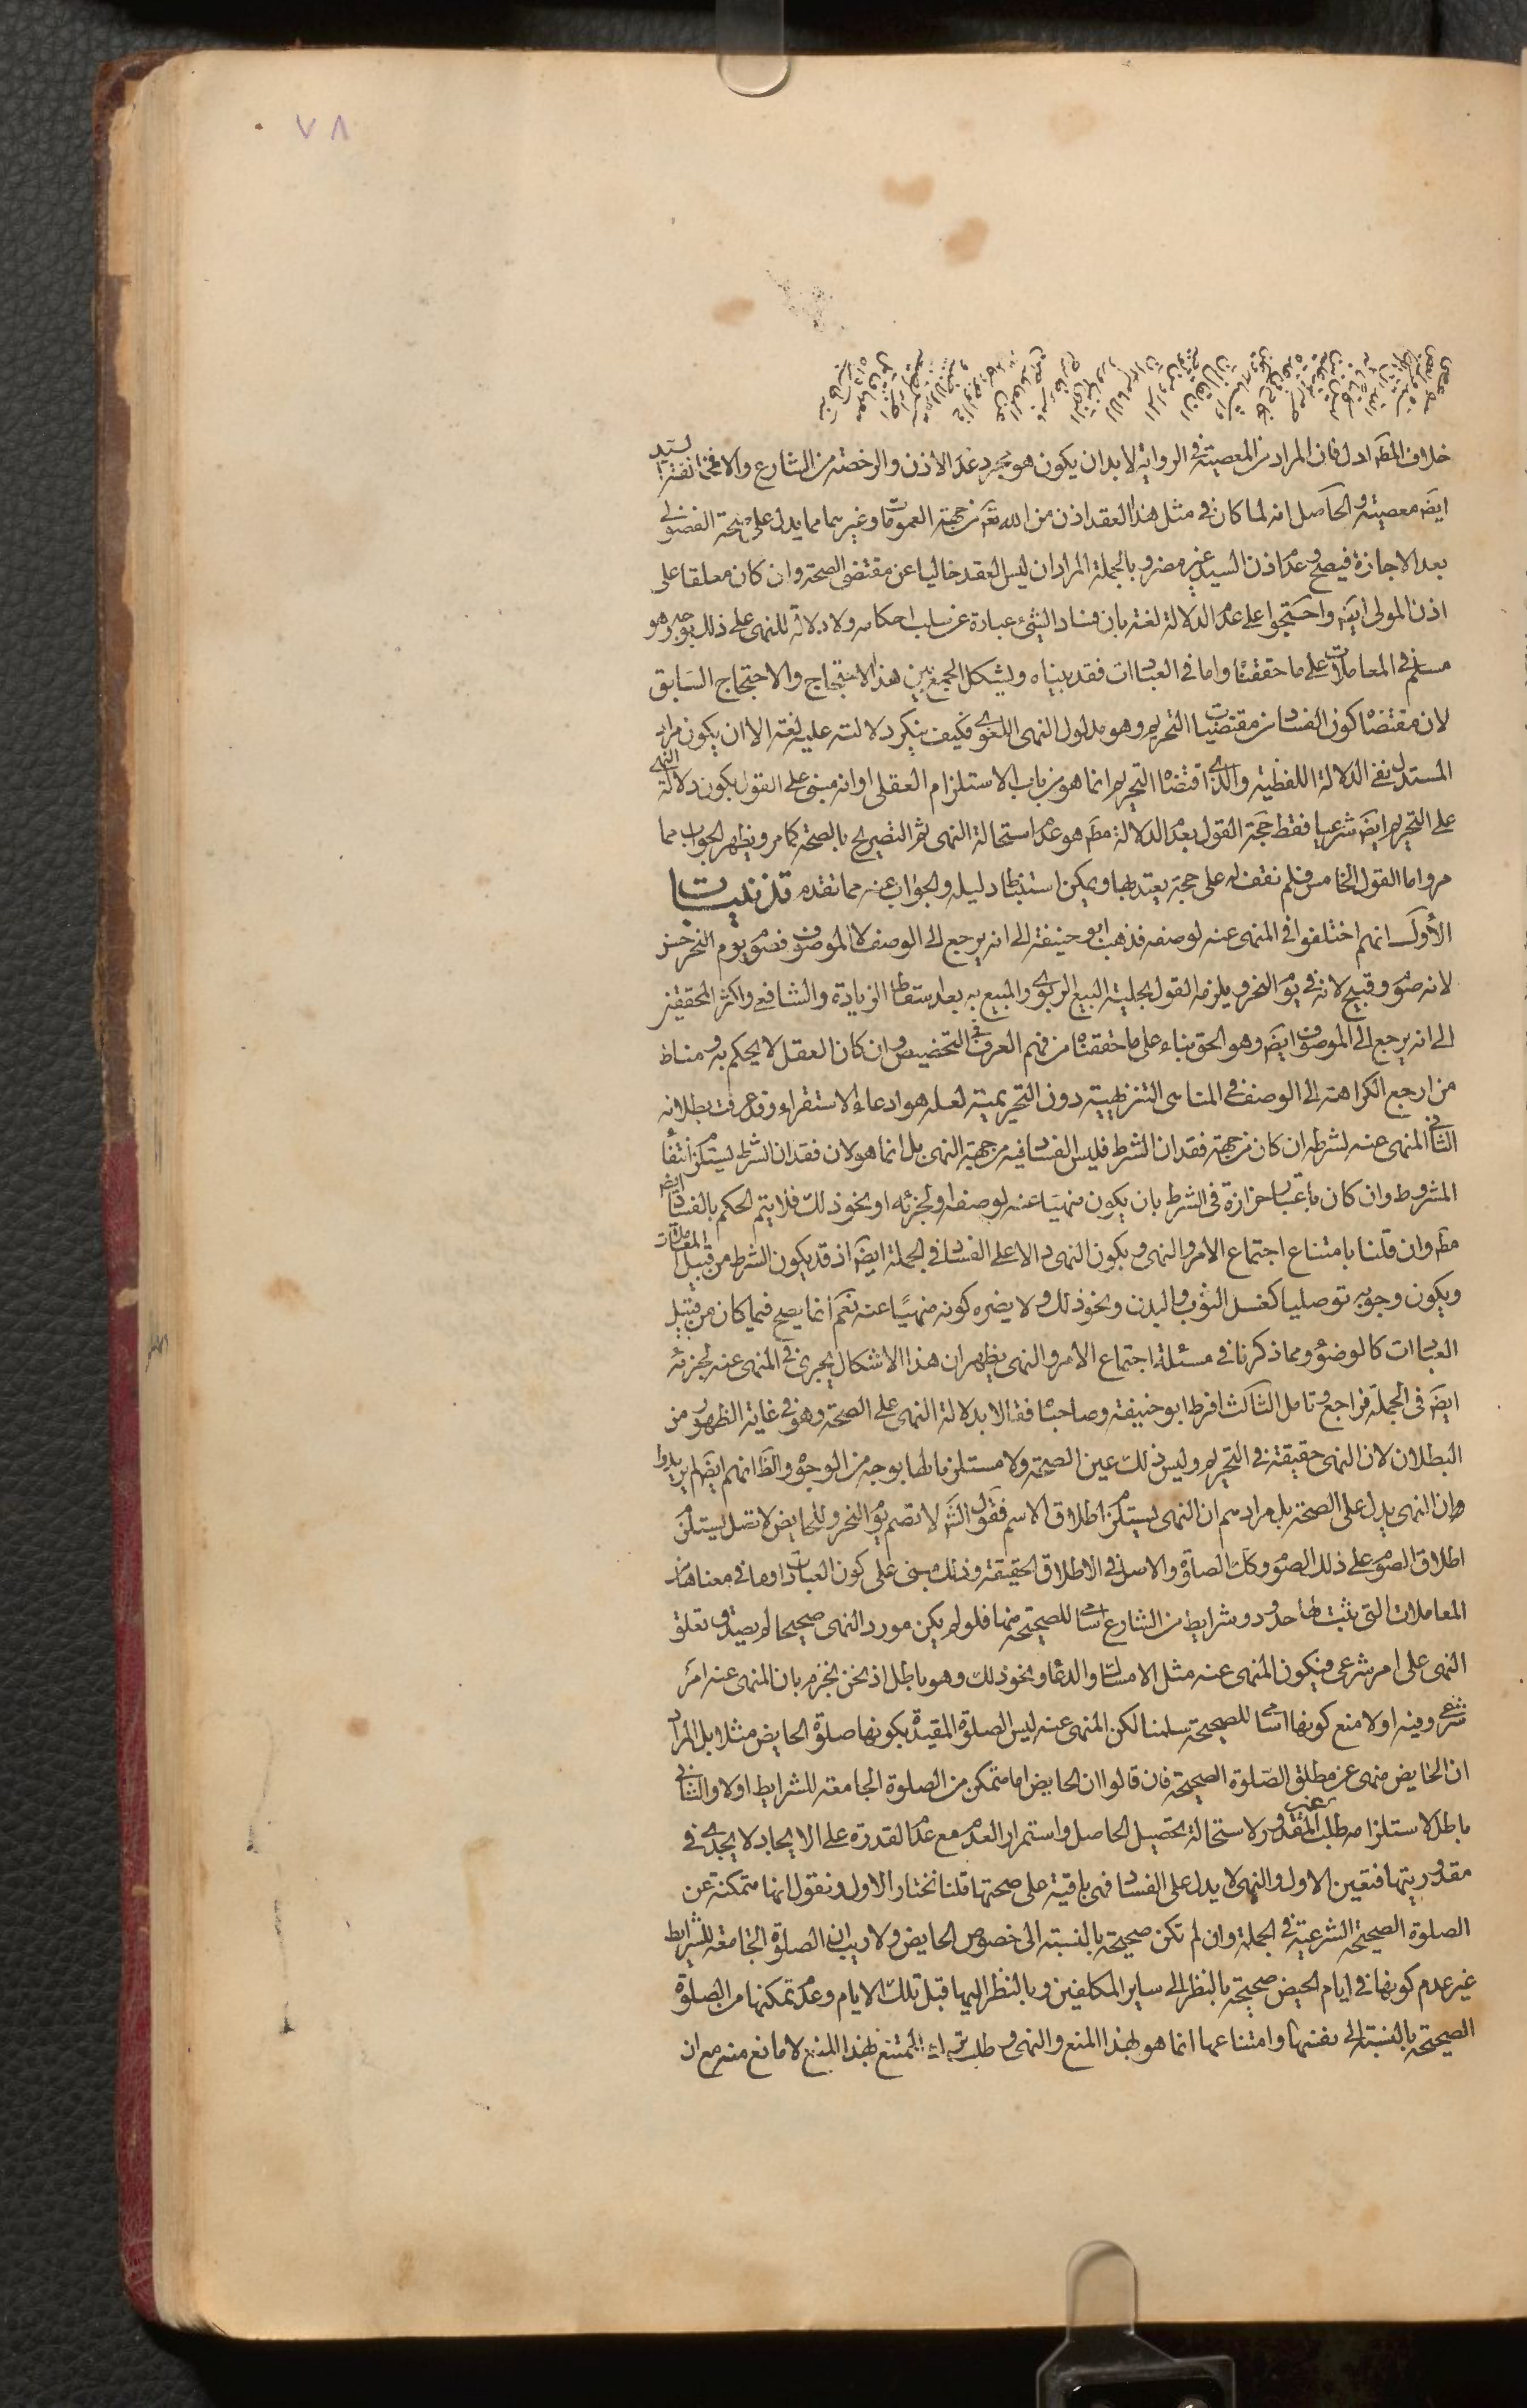 ٧٨
خلاف المط ادل فان المراد من المعصية في الرواية لا بد ان يكون هو مجرد عدم الاذن والرخصة من الشارع والا فمخالفة السيد
ايضا معصية والحاصل انه لما كان في مثل هذا العقد اذن من الله تعم من جهة العمومات وغيرها مما يدل على صحة الفضولي
بعد الاجازة فيصح وعدم اذن السيد غير مضر وبالجملة المراد ان ليس العقد خاليا عن مقتضى الصحة وان كان معلقا على
اذن المولى ايضا واحتجوا على عدم الدلالة لغة بان فساد الشيء عبارة عن سلب احكامه ولا دلالة للنهى على ذلك بوجه وهو
مسلم في المعاملات على ما حققناه واما في العبادات فقد بيناه ويشكل الجمع بين هذا الاحتجاج والاحتجاج السابق
لان مقتضاه كون الفساد من مقتضيات التحريم وهو مدلول النهى اللغوى فكيف ينكر دلالته عليه لغة الا ان يكون مراد
المستدل نفى الدلالة اللفظية والذى اقتضاه التحريم انما هو من باب الاستلزام العقلى او انه مبنى على القول بكون دلالة النهى
على التحريم ايضا شرعيا فقط حجة القول بعدم الدلالة مط هو عدم استحالة النهى ثم التصريح بالصحة كما مر ويظهر الجواب مما
مر واما القول الخامس فلم نقف له على حجة يعتد بها ويمكن استنباط دليله والجواب عنه مما تقدم تذنيبات
الأول انهم اختلفوا في المنهى عنه لوصفه فذهب ابو حنيفة الى انه يرجع الى الوصف لا الموصوف فصوم يوم النحر حسن
لانه صوم وقبيح لانه في يوم النحر ويلزمه القول بحلية البيع الربوى والمبيع به بعد اسقاط الزيادة والشافعى واكثر المحققين
الى انه يرجع الى الموصوف ايضا وهو الحق بناء على ما حققناه من فهم العرف في التخصيص وان كان العقل لا يحكم به ومناط
من ارجع الكراهة الى الوصف في المناهى التنزيهية دون التحريمية لعله هو ادعاء الاستقراء وقد عرفت بطلانه
الثانى المنهى عنه لشرطه ان كان من جهة فقدان الشرط فليس الفساد فيه من جهة النهى بل انما هو لان فقدان الشرط يستلزم انتفاء
المشروط وان كان باعتبار حزازة في الشرط بان يكون منهيا عنه لوصفه او لجزئه او نحو ذلك فلا يتم الحكم بالفساد ايضا
مط وان قلنا بامتناع اجتماع الامر والنهى وبكون النهى دالا على الفساد في الجملة ايضا اذ قد يكون الشرط من قبيل المعاملات
ويكون وجوبه توصليا كغسل الثوب والبدن ونحو ذلك ولا يضره كونه منهيا عنه نعم انما يصح فيما كان من قبيل
العبادات كالوضوء ومما ذكرنا في مسئلة اجتماع الامر والنهى يظهر ان هذا الاشكال يجرى في المنهى عنه لجزئه
ايضا في الجملة فراجع وتامل الثالث افرط ابو حنيفة وصاحباه فقالا بدلالة النهى على الصحة وهو في غاية الظهور من
البطلان لان النهى حقيقة في التحريم وليس ذلك عين الصحة ولا مستلزما لها بوجه من الوجوه والظ انهم ايضا لم يريدوا
وان النهى يدل على الصحة بل مرادهم ان النهى يستلزم اطلاق الاسم فقول الش لا تصم يوم النحر وللحايض لا تصل يستلزم
اطلاق الصوم على ذلك الصوم وكك الصلوة والاصل في الاطلاق الحقيقة وذلك مبنى على كون العبادات او ما في معناها من
المعاملات التى يثبت لها حدود وشرايط من الشارع اسامى للصحيحة منها فلو لم يكن مورد النهى صحيحا لم يصدق تعلق
النهى على امر شرعى فيكون المنهى عنه مثل الامساك والدعاء ونحو ذلك وهو باطل اذ نحن نجزم بان المنهى عنه امر
شرعى وفيه اولا منع كونها اسامى للصحيحة سلمنا لكن المنهى عنه ليس الصلوة المقيدة بكونها صلوة الحايض مثلا بل المراد
ان الحايض منهى عن مطلق الصلوة الصحيحة فان قالوا ان الحايض اما متمكن من الصلوة الجامعة للشرايط اولا والثانى
باطل لاستلزامه طلب غير المقدور لاستحالة تحصيل الحاصل واستمرار العدم مع عدم القدرة على الايجاد لا يجدى في
مقدوريتها فتعين الاول والنهى لا يدل على الفساد فهى باقية على صحتها قلنا نختار الاول ونقول انها متمكنة عن
الصلوة الصحيحة الشرعية في الجملة وان لم تكن صحيحة بالنسبة الى خصوص الحايض ولا ريب ان الصلوة الجامعة للشرايط
غير عدم كونها في ايام الحيض صحيحة بالنظر الى ساير المكلفين وبالنظر اليها قبل تلك الايام وعدم تمكنها من الصلوة
الصحيحة بالنسبة الى نفسها وامتناعها انما هو بهذا المنع والنهى وطلب ترك الممتنع بهذا المنع لا مانع منه مع ان